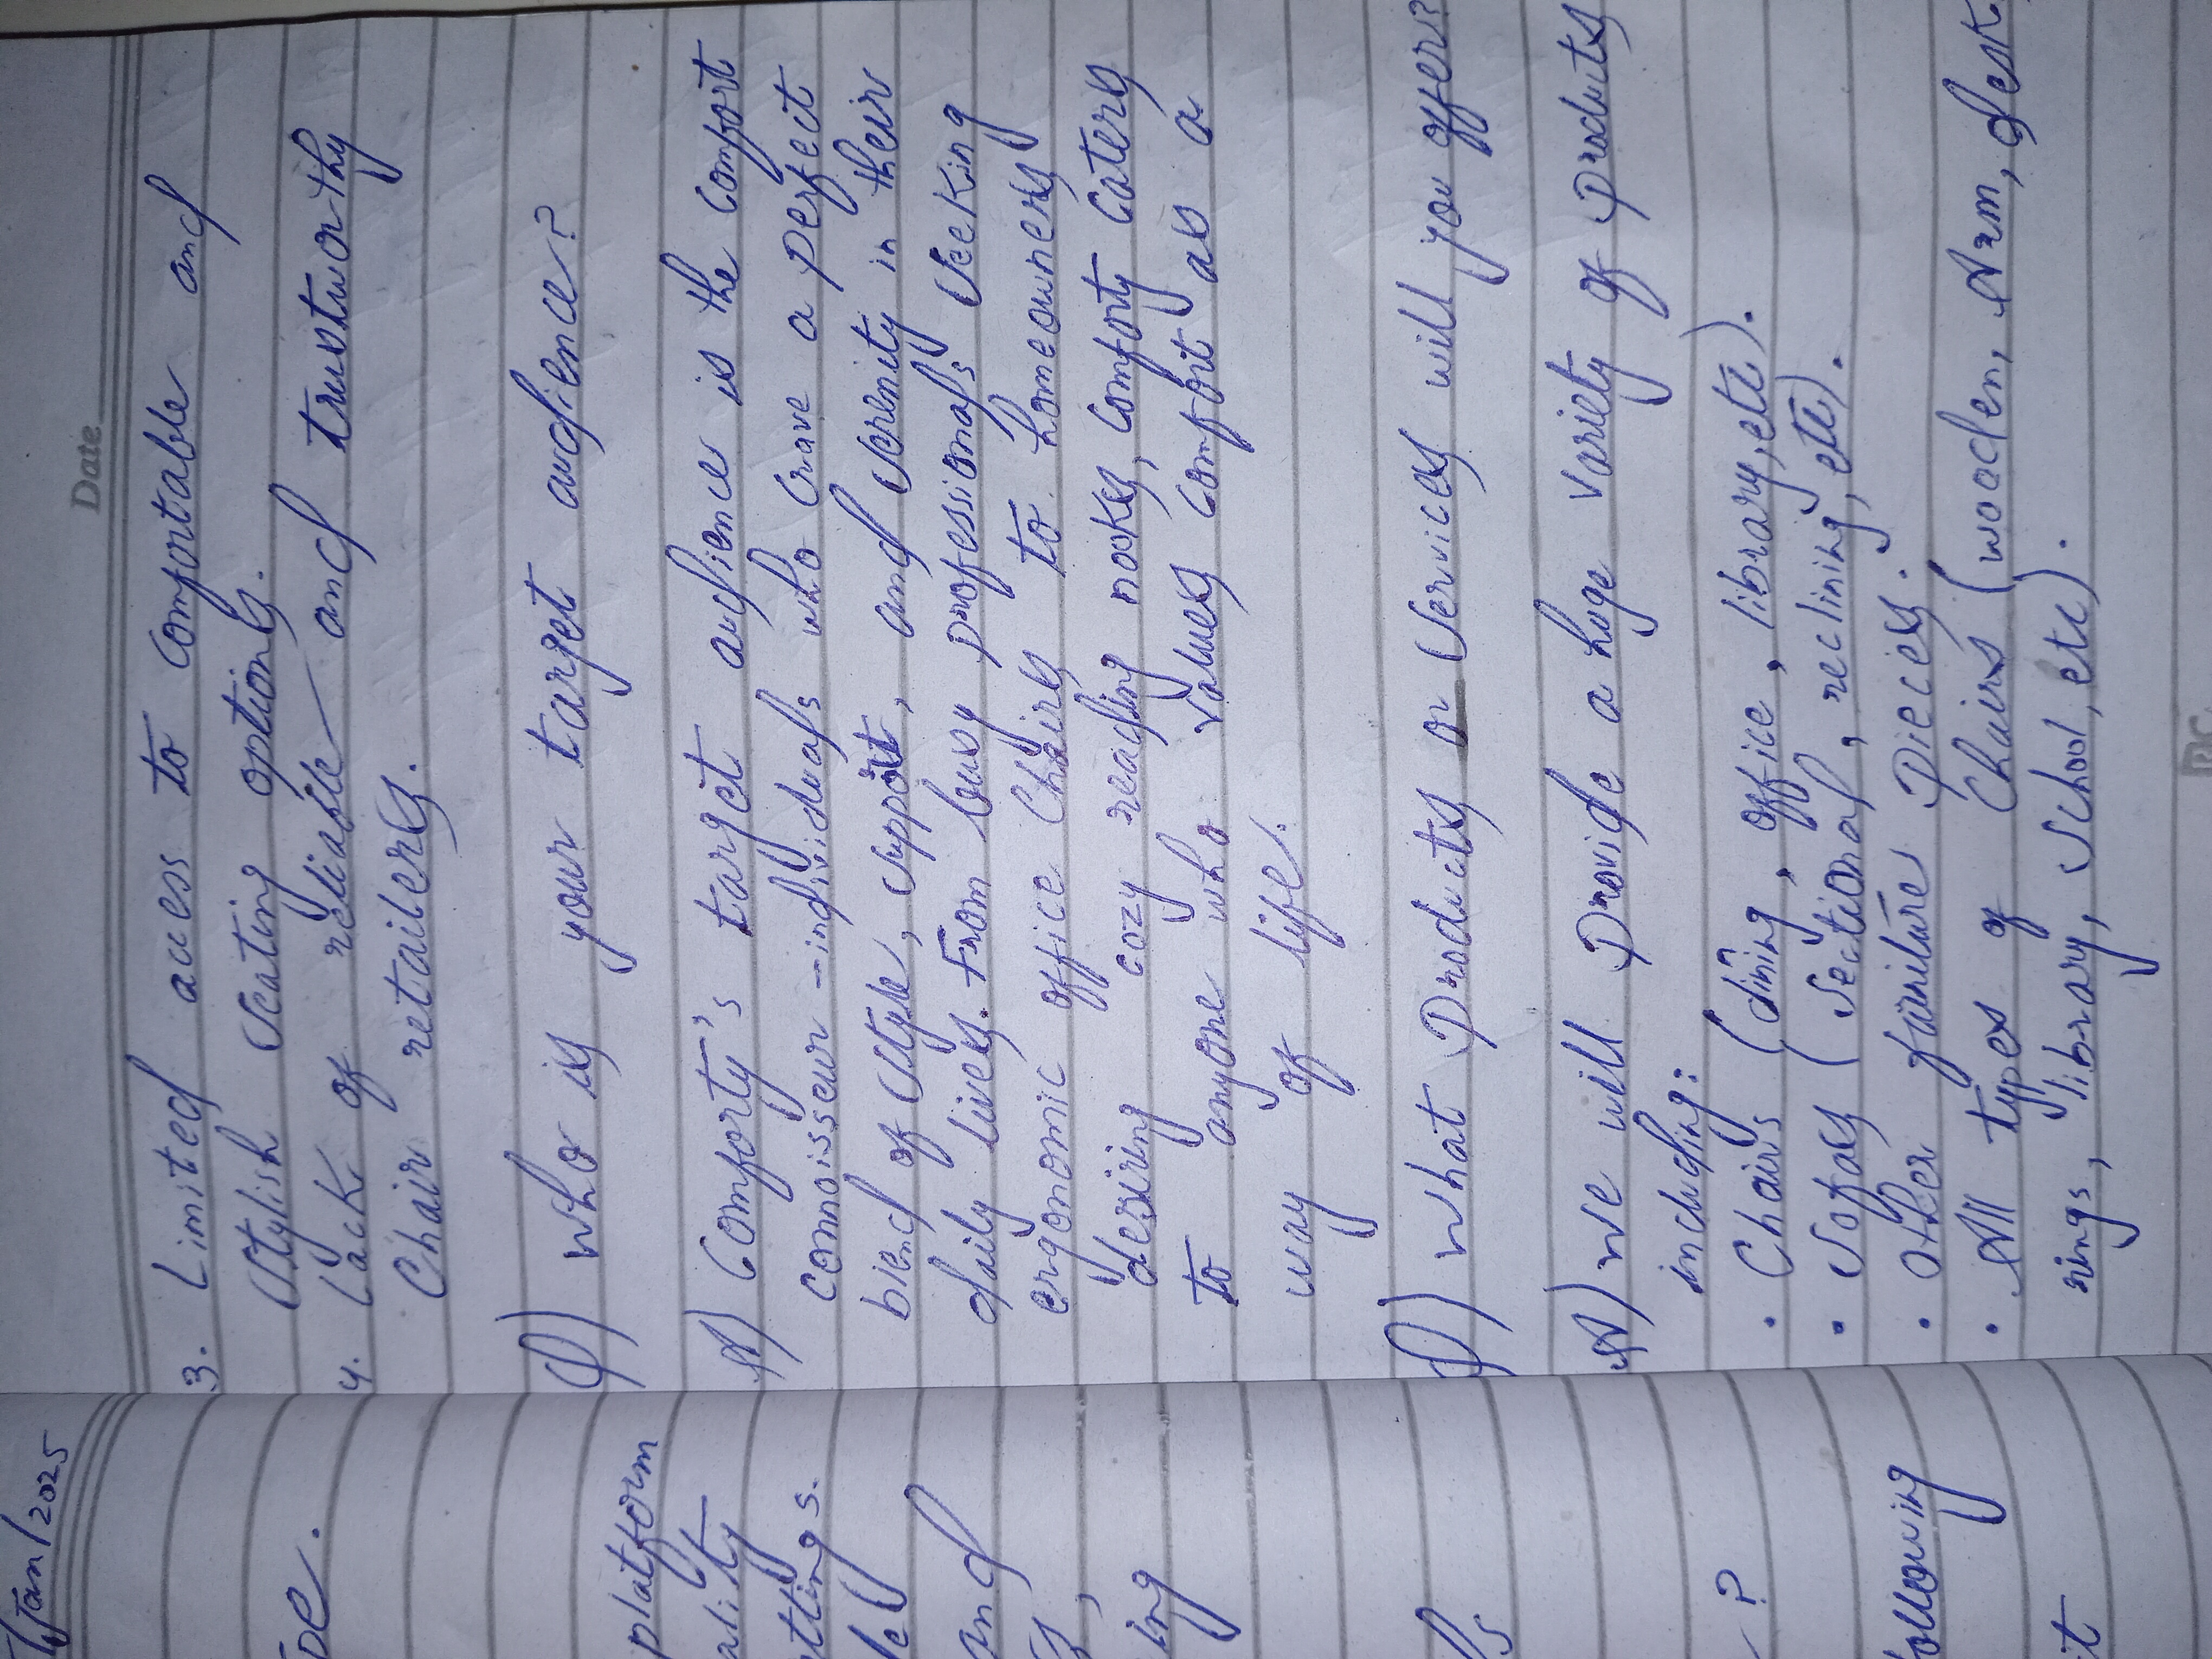 Jan/2025
pe.
platform
ality
ttings.
le
and
s,
ing
ls
?
following
it
Date
3. Limited access to comfortable and
Stylish Seating options.
4. Lack of reliable and trustworthy
Chair retailers.
Q) Who is your target audience?
A) Comforty's target audience is the comfort
connoisseur - individuals who crave a perfect
blend of Style, Support, and Serenity in their
daily lives. From busy professionals Seeking
ergonomic office Chairs to homeowners
desiring cozy reading nooks, Comforty Caters
to anyone who values comfort as a
way of life.
Q) What Products or Services will you offer?
A) We will Provide a huge Variety of Products
including:
• Chairs (dining, office, library, etc).
• Sofas (Sectional, reclining, etc).
• Other furniture Pieces.
• All types of Chairs (wooden, Arm, desk,
rings, library, School, etc).